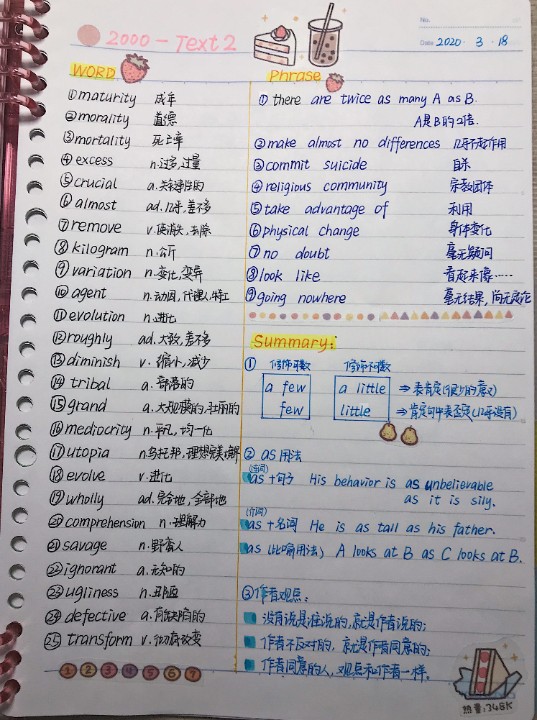 2000 - Text 2
No.
Date 2020 . 3 . 18
WORD
①maturity 成年
②morality 道德
③mortality 死亡率
④excess n.过多,过量
⑤crucial a.关键性的
⑥almost ad.几乎,差不多
⑦remove v.使消失,去除
⑧kilogram n.公斤
⑨variation n.变化,变异
⑩agent n.动因,代理人,特工
⑪evolution n.进化
⑫roughly ad.大致,差不多
⑬diminish v.缩小,减少
⑭tribal a.部落的
⑮grand a.大规模的,壮丽的
⑯mediocrity n.平凡,均一化
⑰utopia n.乌托邦,理想完美境界
⑱evolve v.进化
⑲wholly ad.完全地,全部地
⑳comprehension n.理解力
㉑savage n.野蛮人
㉒ignorant a.无知的
㉓ugliness n.丑陋
㉔defective a.有缺陷的
㉕transform v.彻底改变
① ② ③ ④ ⑤ ⑥ ⑦
Phrase
① there are twice as many A as B.
A是B的2倍.
②make almost no differences 几乎不起作用
③commit suicide 自杀
④religious community 宗教团体
⑤take advantage of 利用
⑥physical change 身体变化
⑦no doubt 毫无疑问
⑧look like 看起来像……
⑨going nowhere 毫无结果,尚无定论
Summary:
① 修饰可数 修饰不可数
a few a little ⇒表肯定(很少的意义)
few little ⇒肯定句中表否定(几乎没有)
② as用法
(连词)
as+句子 His behavior is as unbelievable
as it is sily.
(介词)
as+名词 He is as tall as his father.
as (比喻用法) A looks at B as C looks at B.
③作者观点:
没有说是谁说的,就是作者说的;
作者不反对的,就是作者同意的;
作者同意的人,观点和作者一样.
热量:348K